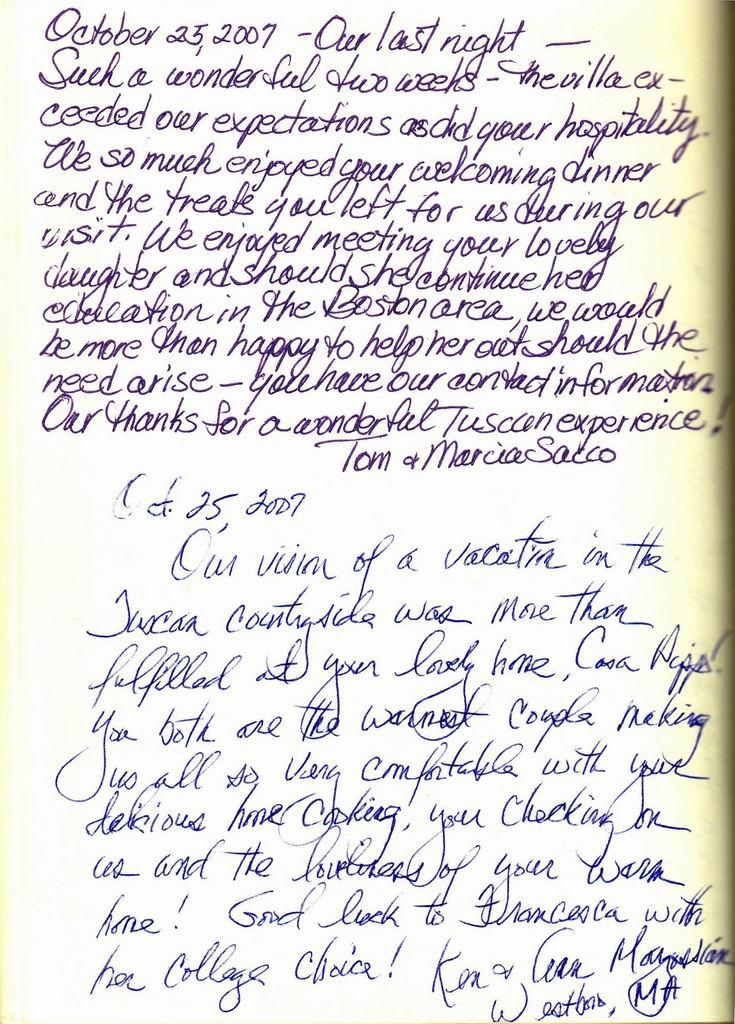 October 25, 2007 - Our last night —
Such a wonderful two weeks - the villa ex-
ceeded our expectations as did your hospitality.
We so much enjoyed your welcoming dinner
and the treats you left for us during our
visit. We enjoyed meeting your lovely
daughter and should she continue her
education in the Boston area, we would
be more than happy to help her out should the
need arise - you have our contact information.
Our thanks for a wonderful Tuscan experience!
Tom & Marcia Sacco
Oct. 25, 2007
Our vision of a vacation in the
Tuscan countryside was more than
fulfilled at your lovely home, Casa
You both are the warmest couple making
us all so very comfortable with your
delicious home cooking, your checking on
us and the loveliness of your warm
home! Good luck to Francesca with
her college choice! Ken & Ann
Westboro, MA